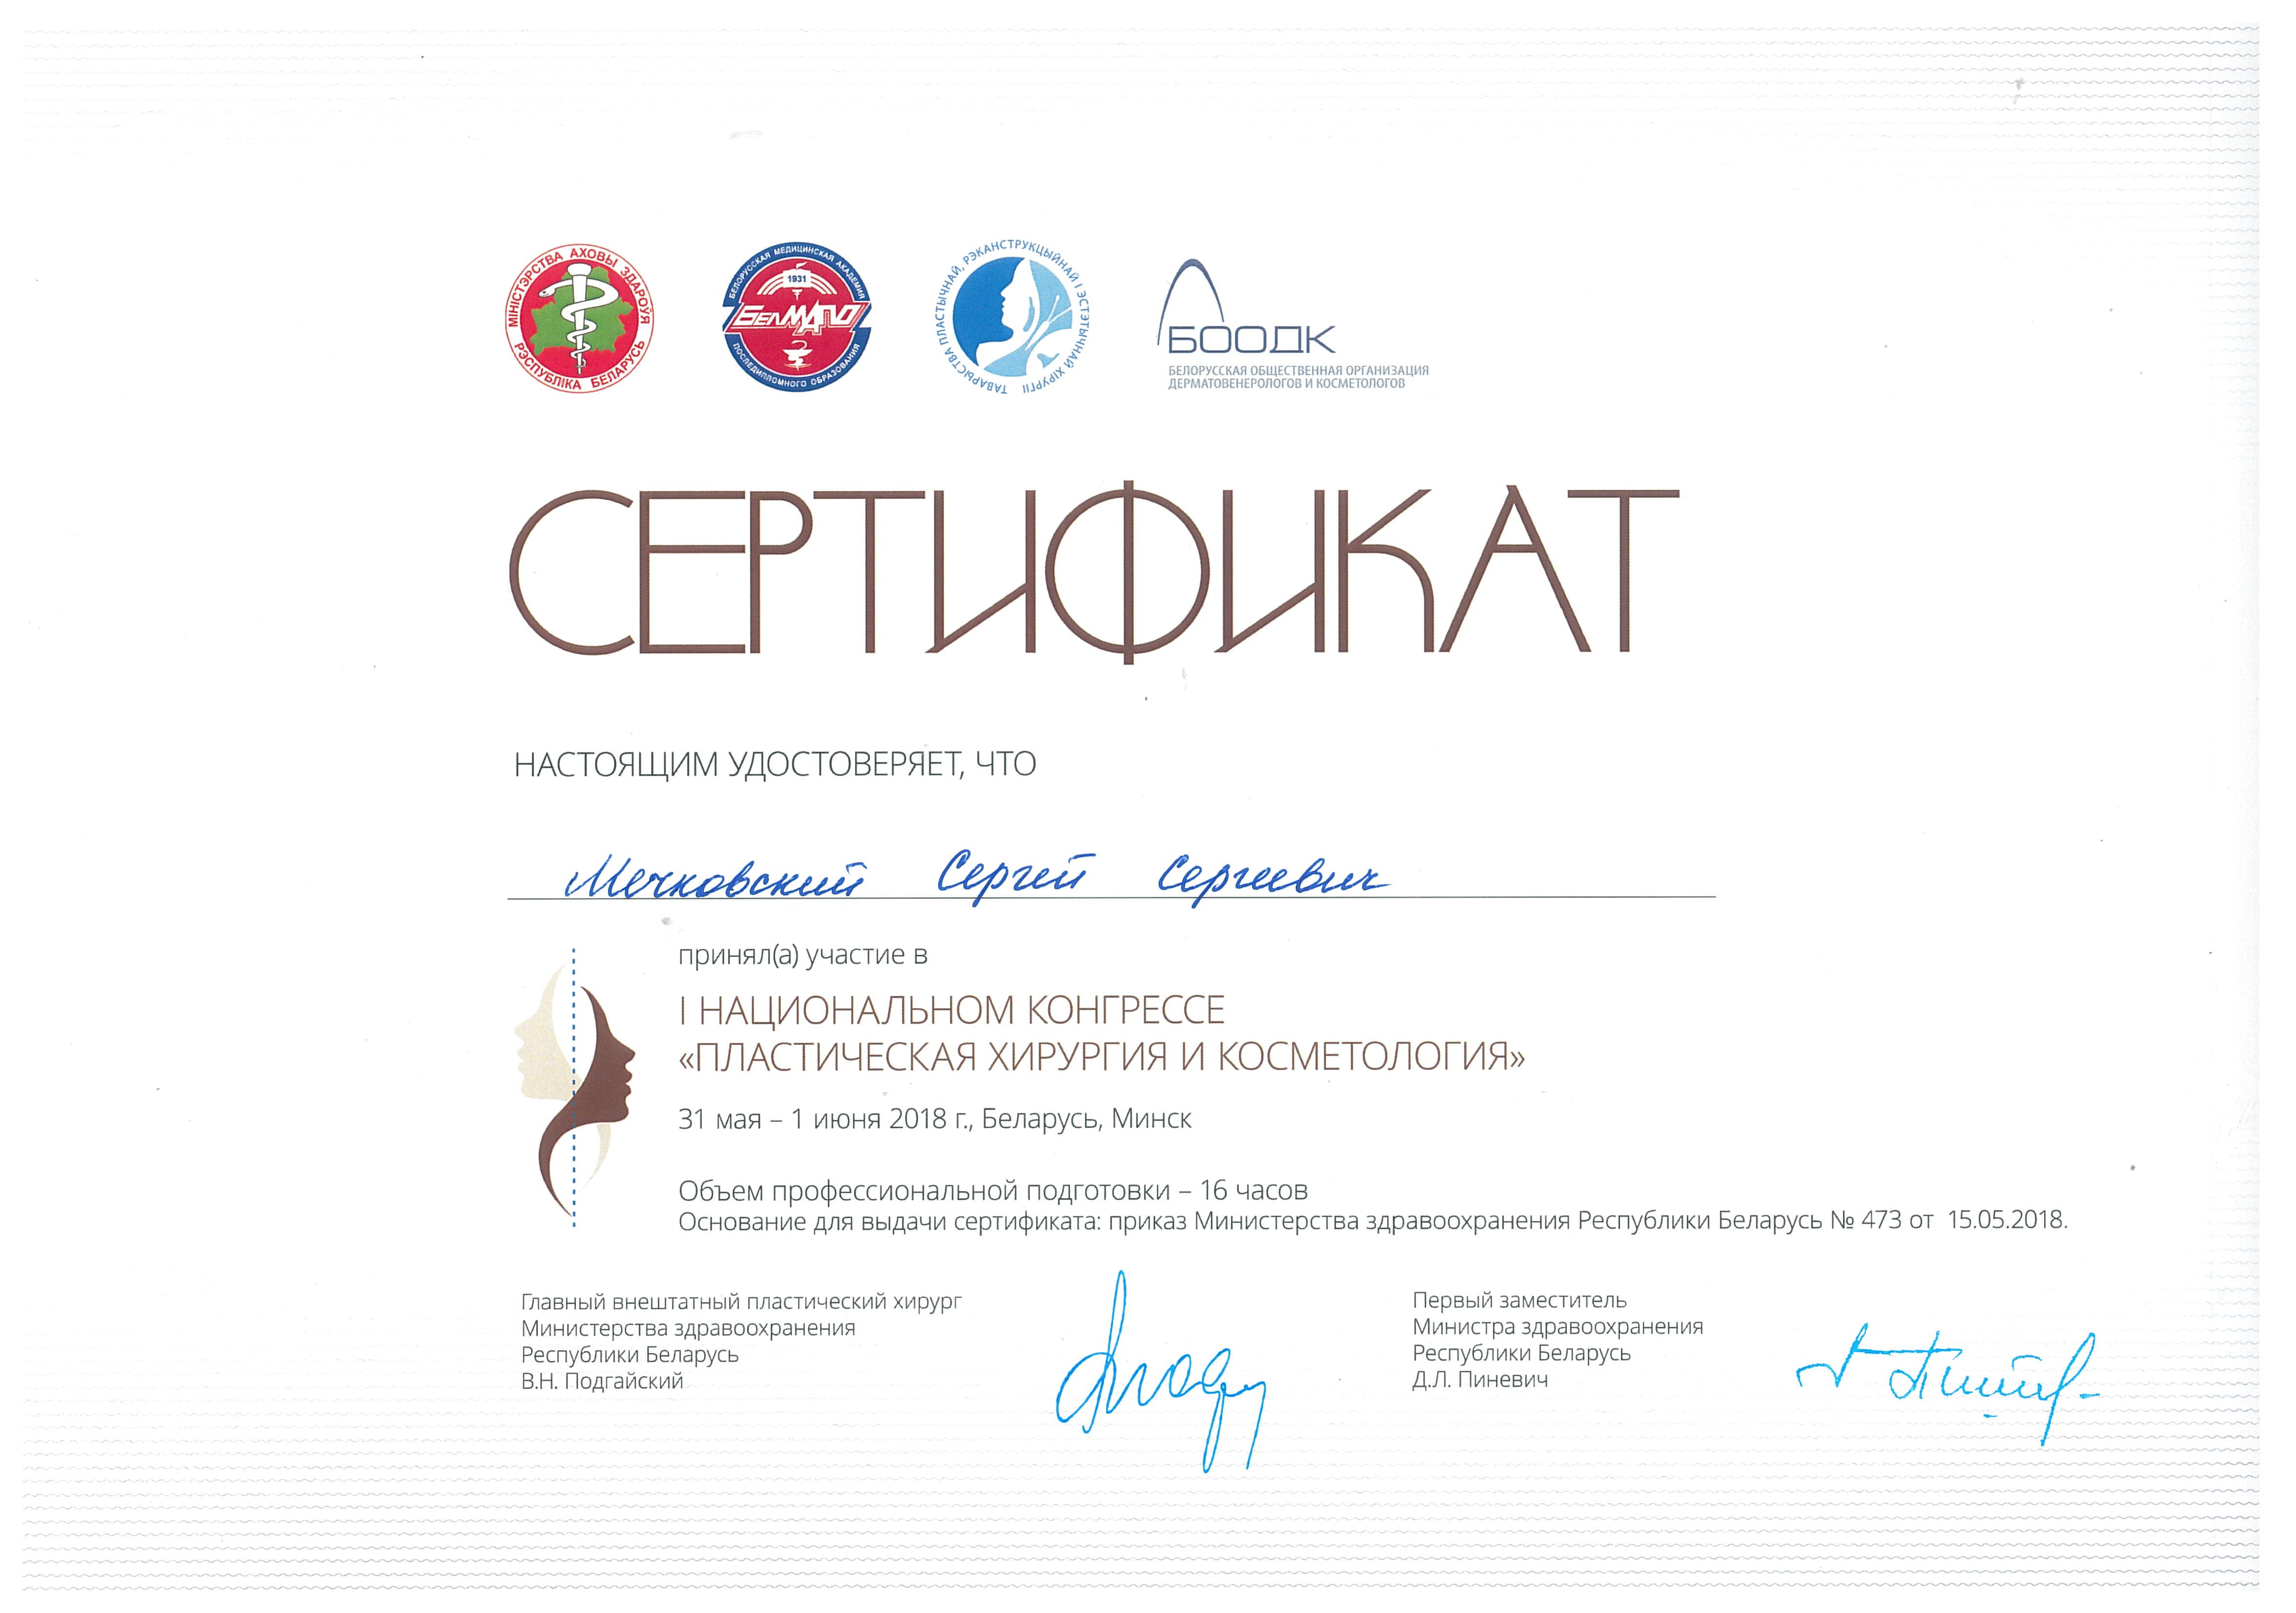 МІНІСТЭРСТВА АХОВЫ ЗДАРОЎЯ
РЭСПУБЛІКА БЕЛАРУСЬ
БЕЛОРУССКАЯ МЕДИЦИНСКАЯ АКАДЕМИЯ
1931
БЕЛМАПО
ПОСЛЕДИПЛОМНОГО ОБРАЗОВАНИЯ
ТАВАРЫСТВА ПЛАСТЫЧНАЙ, РЭКАНСТРУКЦЫЙНАЙ І ЭСТЭТЫЧНАЙ ХІРУРГІІ
БООДК
БЕЛОРУССКАЯ ОБЩЕСТВЕННАЯ ОРГАНИЗАЦИЯ
ДЕРМАТОВЕНЕРОЛОГОВ И КОСМЕТОЛОГОВ
СЕРТИФИКАТ
НАСТОЯЩИМ УДОСТОВЕРЯЕТ, ЧТО
Мечковский Сергей Сергеевич
принял(а) участие в
I НАЦИОНАЛЬНОМ КОНГРЕССЕ
«ПЛАСТИЧЕСКАЯ ХИРУРГИЯ И КОСМЕТОЛОГИЯ»
31 мая – 1 июня 2018 г., Беларусь, Минск
Объем профессиональной подготовки – 16 часов
Основание для выдачи сертификата: приказ Министерства здравоохранения Республики Беларусь № 473 от 15.05.2018.
Главный внештатный пластический хирург
Министерства здравоохранения
Республики Беларусь
В.Н. Подгайский
Первый заместитель
Министра здравоохранения
Республики Беларусь
Д.Л. Пиневич